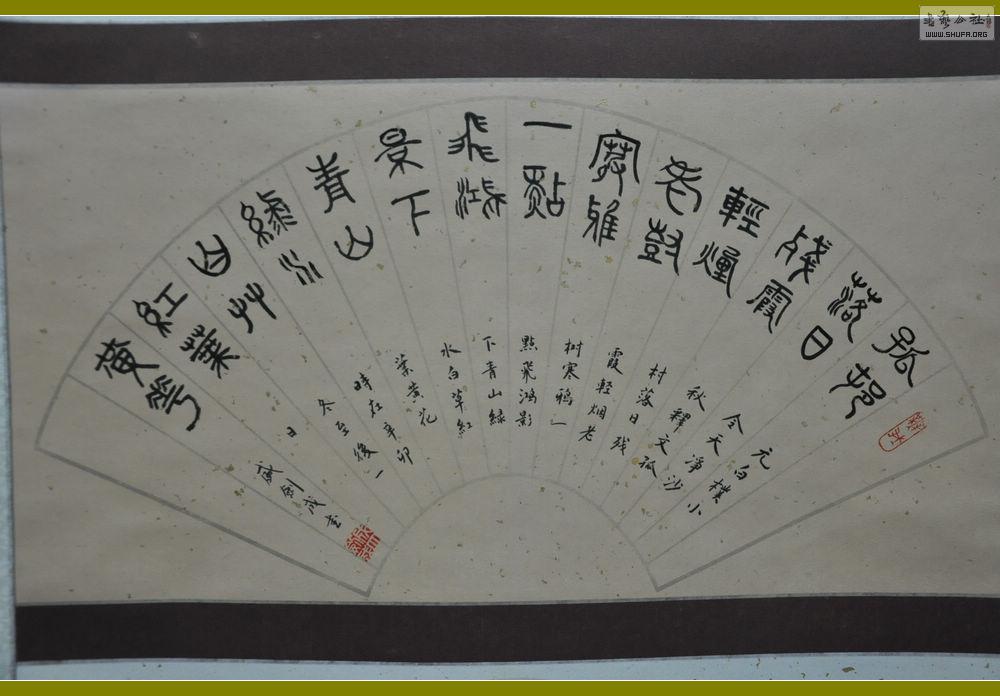 孤邨
落日
殘霞
輕煙
老樹
寒雅
一點
飛鴻
景下
青山
綠水
白艸
紅葉
黃華
元白樸小
令天淨沙
秋釋文孤
村落日残
霞輕烟老
树寒鴉一
點飛鴻影
下青山綠
水白草紅
葉黄花
時在辛卯
冬至後一
日
劍成書
WWW.SHUFA.ORG